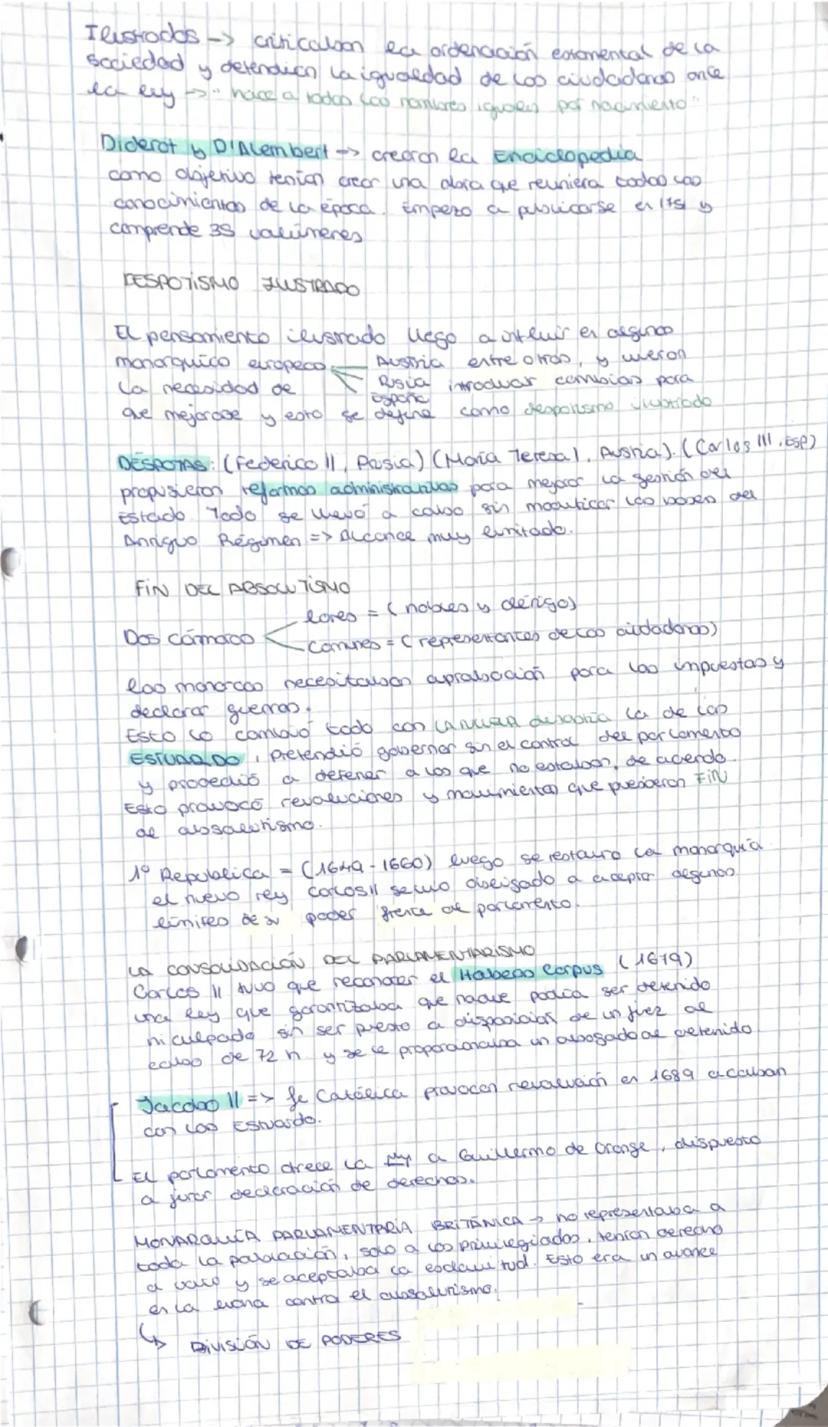 Ilustrados -> criticaban la ordenación estamental de la
sociedad y defendían la igualdad de los ciudadanos ante
la ley -> "nace a todos los hombres iguales por nacimiento"
Diderot y D'Alembert -> crearon la Enciclopedia
como objetivo tenían crear una obra que reuniera todos los
conocimientos de la época. Empezó a publicarse en 1751 y
comprende 35 volúmenes
DESPOTISMO ILUSTRADO
El pensamiento ilustrado llego a influir en algunos
monarquico europeos Austria entre otros, y vieron
la necesidad de Rusia introducir cambios para
España
que mejorase y esto se define como despotismo ilustrado
DÉSPOTAS: (Federico II, Prusia) (María Teresa I, Austria). (Carlos III, Esp)
propusieron reformas administrativas para mejorar la gestión del
Estado Todo se llevó a cabo sin modificar las bases del
Antiguo Régimen => Alcance muy limitado.
FIN DEL ABSOLUTISMO
Dos cámaras lores = (nobles y clérigo)
comunes = (representantes de los ciudadanos)
los monarcas necesitaban aprobación para los impuestos y
declarar guerras.
Esto lo cambió todo con la nueva dinastía la de los
ESTUARDO, Pretendió gobernar sin el control del parlamento
y procedió a detener a los que no estaban, de acuerdo.
Esto provocó revoluciones y movimientos que pusieron FIN
al absolutismo.
1º República = (1649-1660) luego se restauró la monarquía
el nuevo rey Carlos II se vio obligado a aceptar algunos
límites de su poder frente al parlamento.
LA CONSOLIDACIÓN DEL PARLAMENTARISMO
Carlos II tuvo que reconocer el Habeas Corpus (1679)
una ley que garantizaba que nadie podía ser detenido
ni culpado sin ser puesto a disposición de un juez al
cabo de 72 h y se le proporcionaba un abogado al detenido
Jacobo II => fe Católica provocan revolución en 1689 acaban
con los Estuardo.
El parlamento ofrece la a Guillermo de Orange, dispuesto
a jurar declaración de derechos.
MONARQUÍA PARLAMENTARIA BRITÁNICA -> no representaba a
toda la población, solo a los privilegiados, tenían derecho
a voto y se aceptaba la esclavitud. Esto era un avance
en la lucha contra el absolutismo.
↳ DIVISIÓN DE PODERES